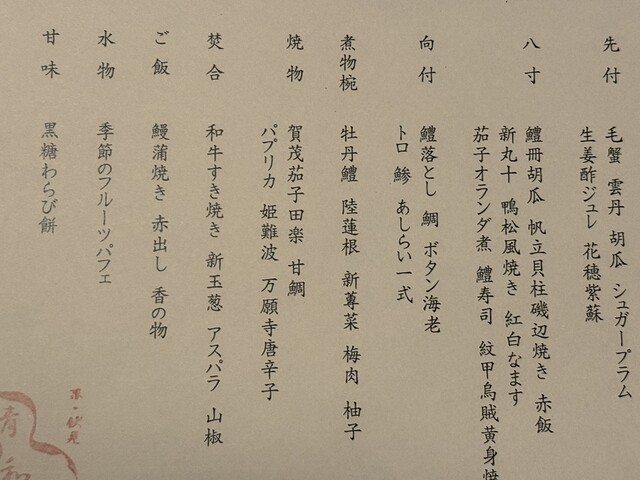 先付
毛蟹 雲丹 胡瓜 シュガープラム
生姜酢ジュレ 花穂紫蘇
八寸
鱧冊胡瓜 帆立貝柱磯辺焼き 赤飯
新丸十 鴨松風焼き 紅白なます
茄子オランダ煮 鱧寿司 紋甲烏賊黄身焼
向付
鱧落とし 鯛 ボタン海老
トロ 鰺 あしらい一式
煮物椀
牡丹鱧 陸蓮根 新蓴菜 梅肉 柚子
焼物
賀茂茄子田楽 甘鯛
パプリカ 姫難波 万願寺唐辛子
焚合
和牛すき焼き 新玉葱 アスパラ 山椒
ご飯
鰻蒲焼き 赤出し 香の物
水物
季節のフルーツパフェ
甘味
黒糖わらび餅